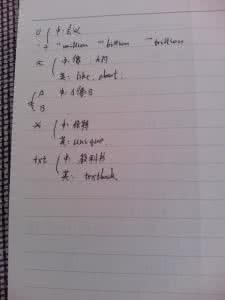 中:
"million "billion "trillion
中:像、大约
英: like, about.
A 中: A像B
B
* 中: 独特
英: unique
txt 中: 教科书
英: textbook